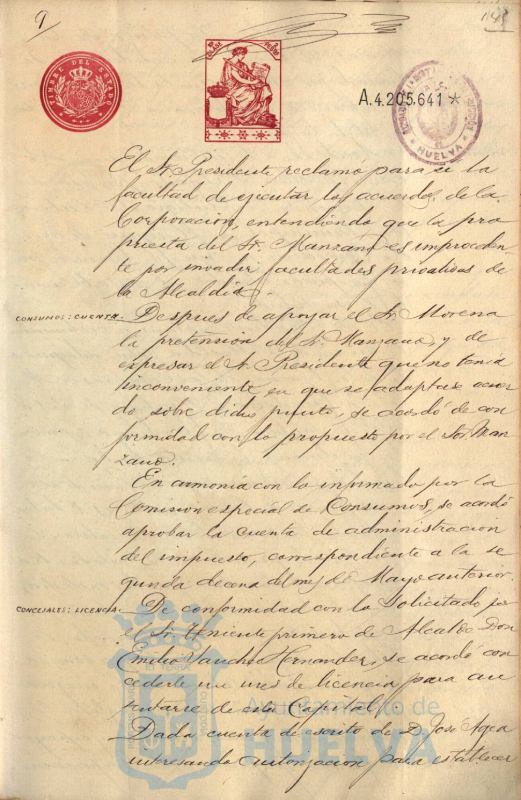 9
TIMBRE DEL ESTADO
A.4.205.641 *
HUELVA
El Sr. Presidente reclamó para si la
facultad de ejecutar los acuerdos de la
Corporacion, entendiendo que la pro
puesta del Sr. Manzano es improceden
te por invadir facultades privativas de
la Alcaldia.
CONSUMOS: CUENTA. Despues de apoyar el Sr. Morena
la pretension del Sr. Manzano, y de
expresar el Sr. Presidente que no tenia
inconveniente en que se adaptase acuer
do sobre dicho punto, se acordó de con
formidad con lo propuesto por el Sor. Man
zano.
En armonia con lo informado por la
Comision especial de Consumos, se acordó
aprobar la cuenta de administracion
del impuesto, correspondiente a la se
gunda decena del mes de Mayo anterior.
CONCEJALES: LICENCIA. De conformidad con lo Solicitado por
el Sr. Teniente primero de Alcalde Don
Emilio Sanchez Hernandez, se acordó con
cederle un mes de licencia para au
sentarse de esta Capital.
Dada cuenta de escrito de D. José
interesando autorizacion para establecer
Ayuntamiento de
HUELVA